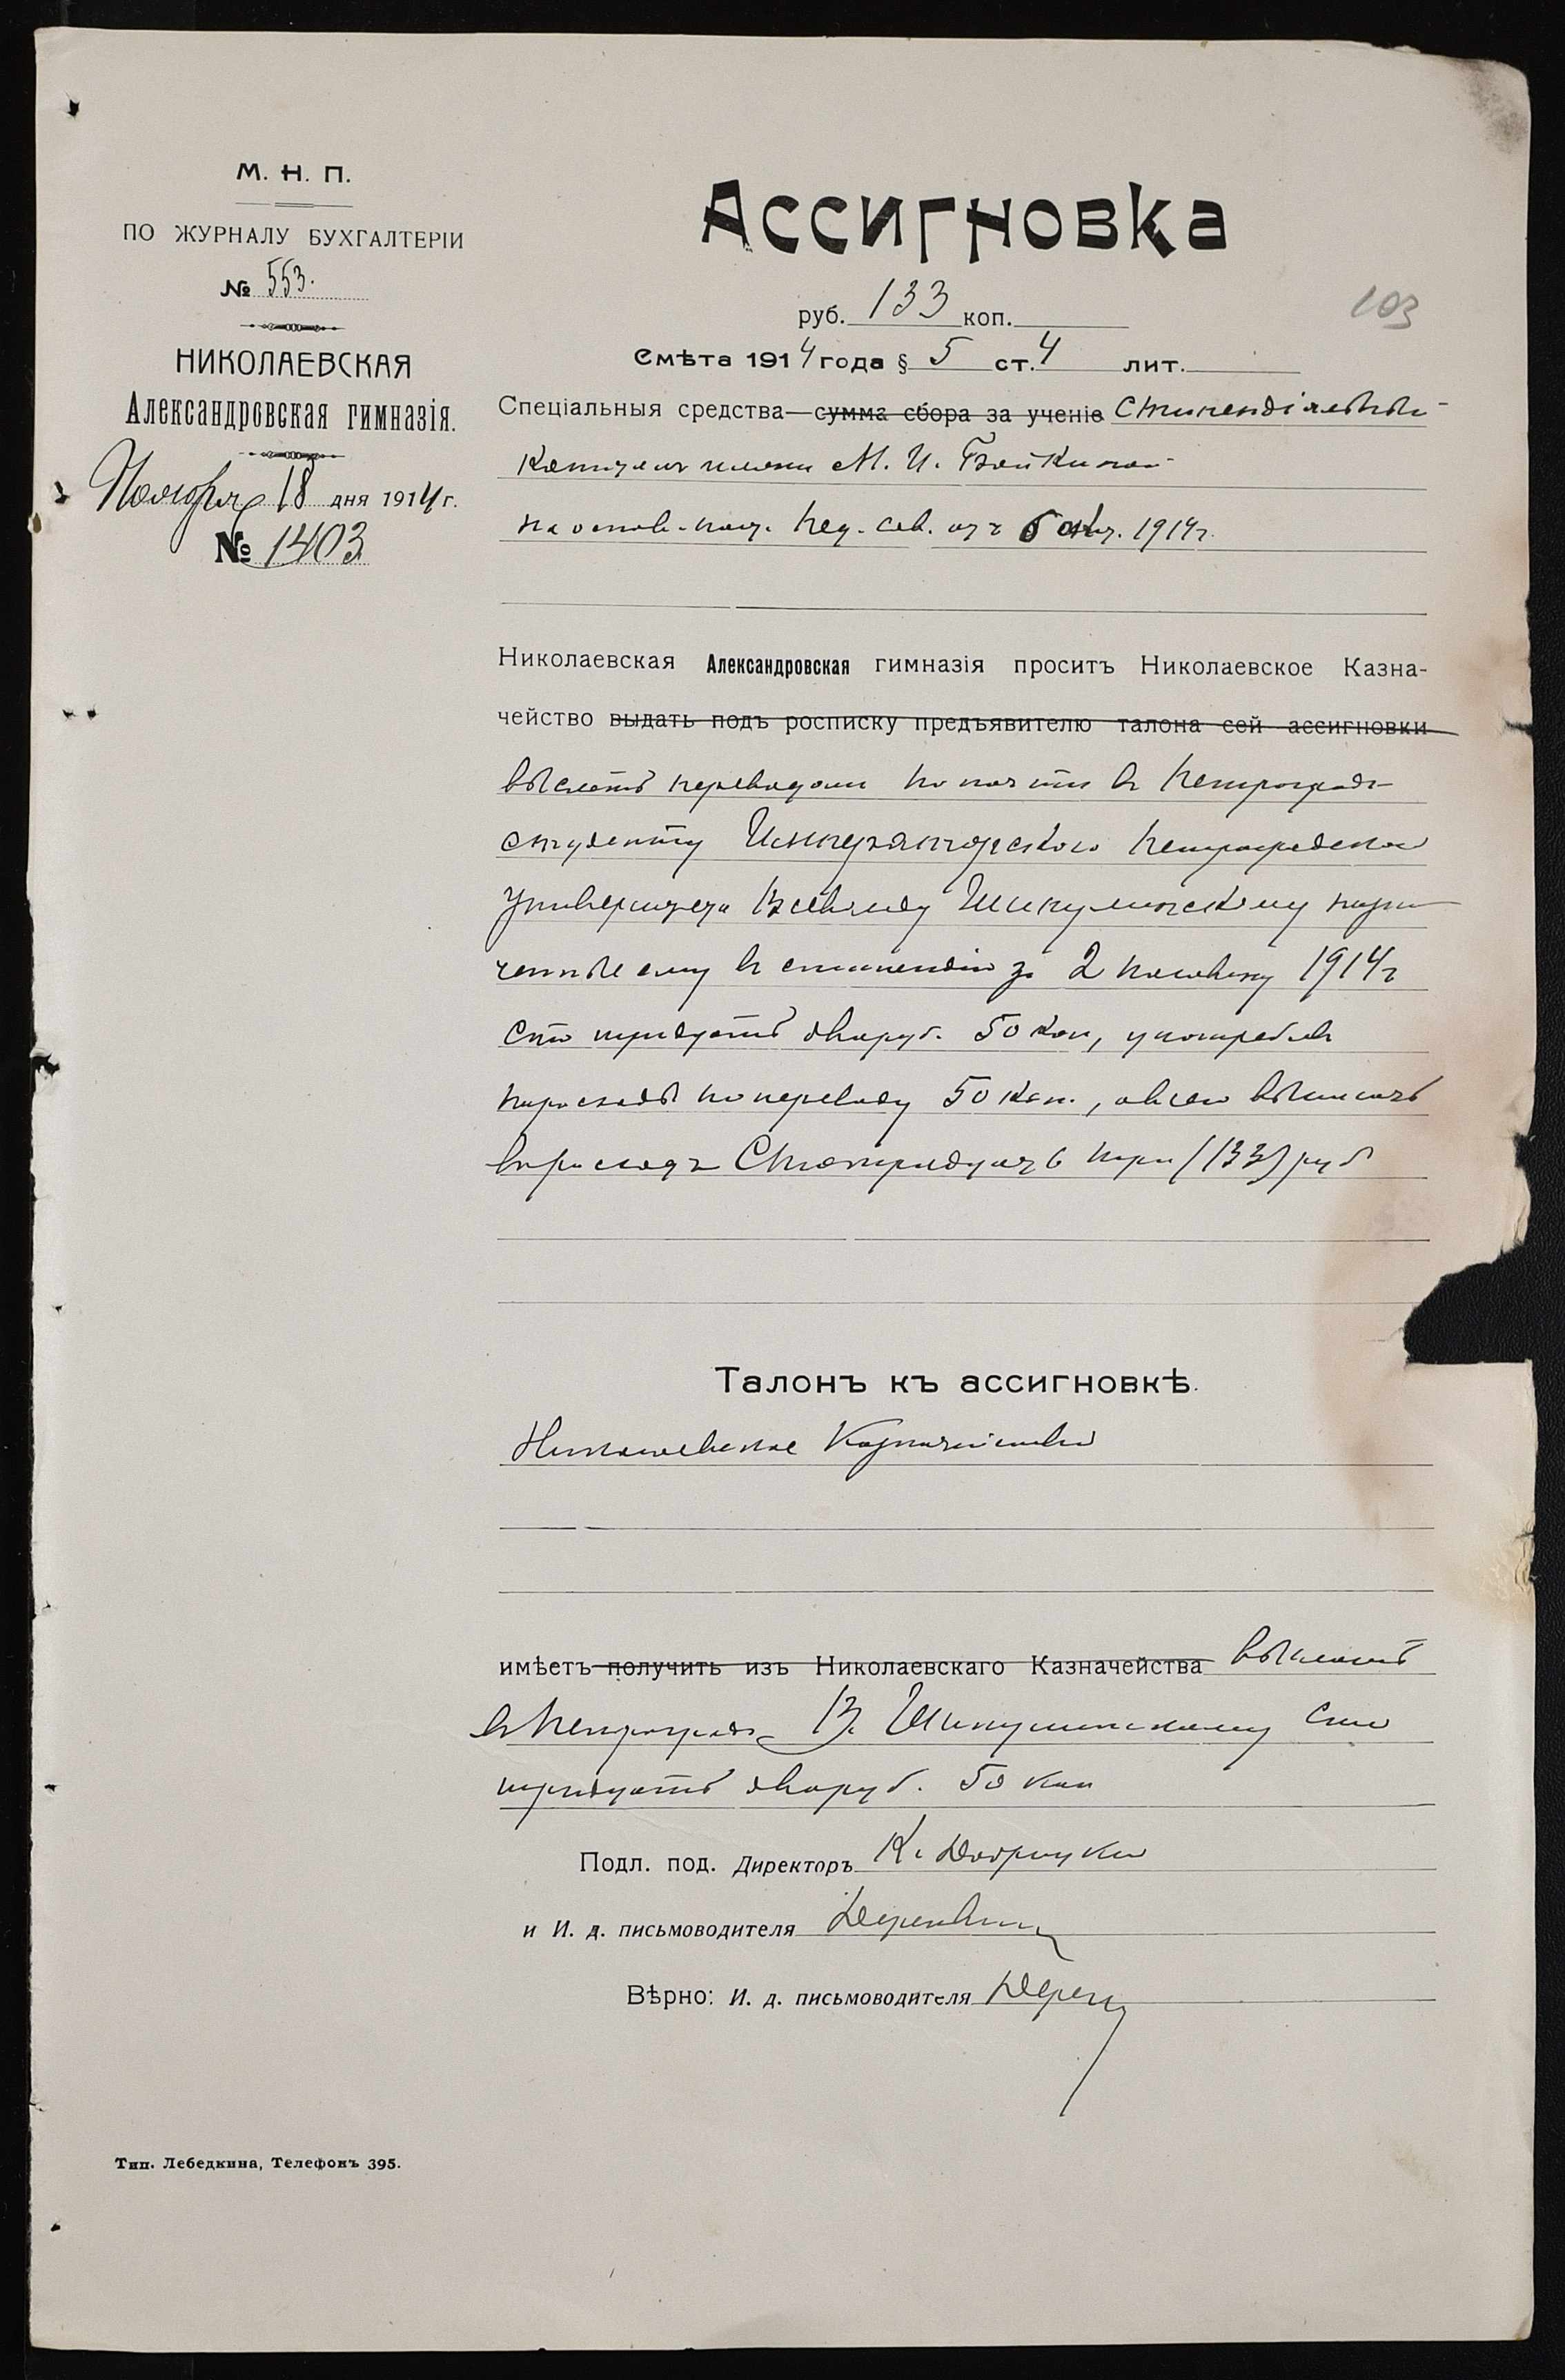 М. Н. П.
ПО ЖУРНАЛУ БУХГАЛТЕРІИ
№ 553.
НИКОЛАЕВСКАЯ
Александровская гимназія.
Ноября 18 дня 1914 г.
№ 1403
Ассигновка
103
руб. 133 коп.
Смѣта 1914 года § 5 ст. 4 лит.
Спеціальныя средства—сумма сбора за ученіе Стипендіальный
капиталъ имени М. И. Бойкиной
на основ. пост. Пед. сов. отъ 6 окт. 1914 г.
Николаевская Александровская гимназія проситъ Николаевское Казна-
чейство выдать подъ росписку предъявителю талона сей ассигновки
выслать переводомъ по почтѣ въ Петроградъ
студенту Императорскаго Петроградскаго
Университета Всеволоду Шикулинскому назна
ченные ему въ стипендію за 2 половину 1914 г
сто тридцать два руб. 50 коп, употребивъ
на расходы по переводу 50 коп., а всего выписать
въ расходъ Сто тридцать три (133) руб
Талонъ къ ассигновкѣ.
Николаевское Казначейство
имѣетъ получить изъ Николаевскаго Казначейства выслать
въ Петроградъ В. Шикулинскому Сто
тридцать два руб. 50 коп
Подл. под. Директоръ К.
и И. д. письмоводителя
Вѣрно: И. д. письмоводителя
Тип. Лебедкина, Телефонъ 395.